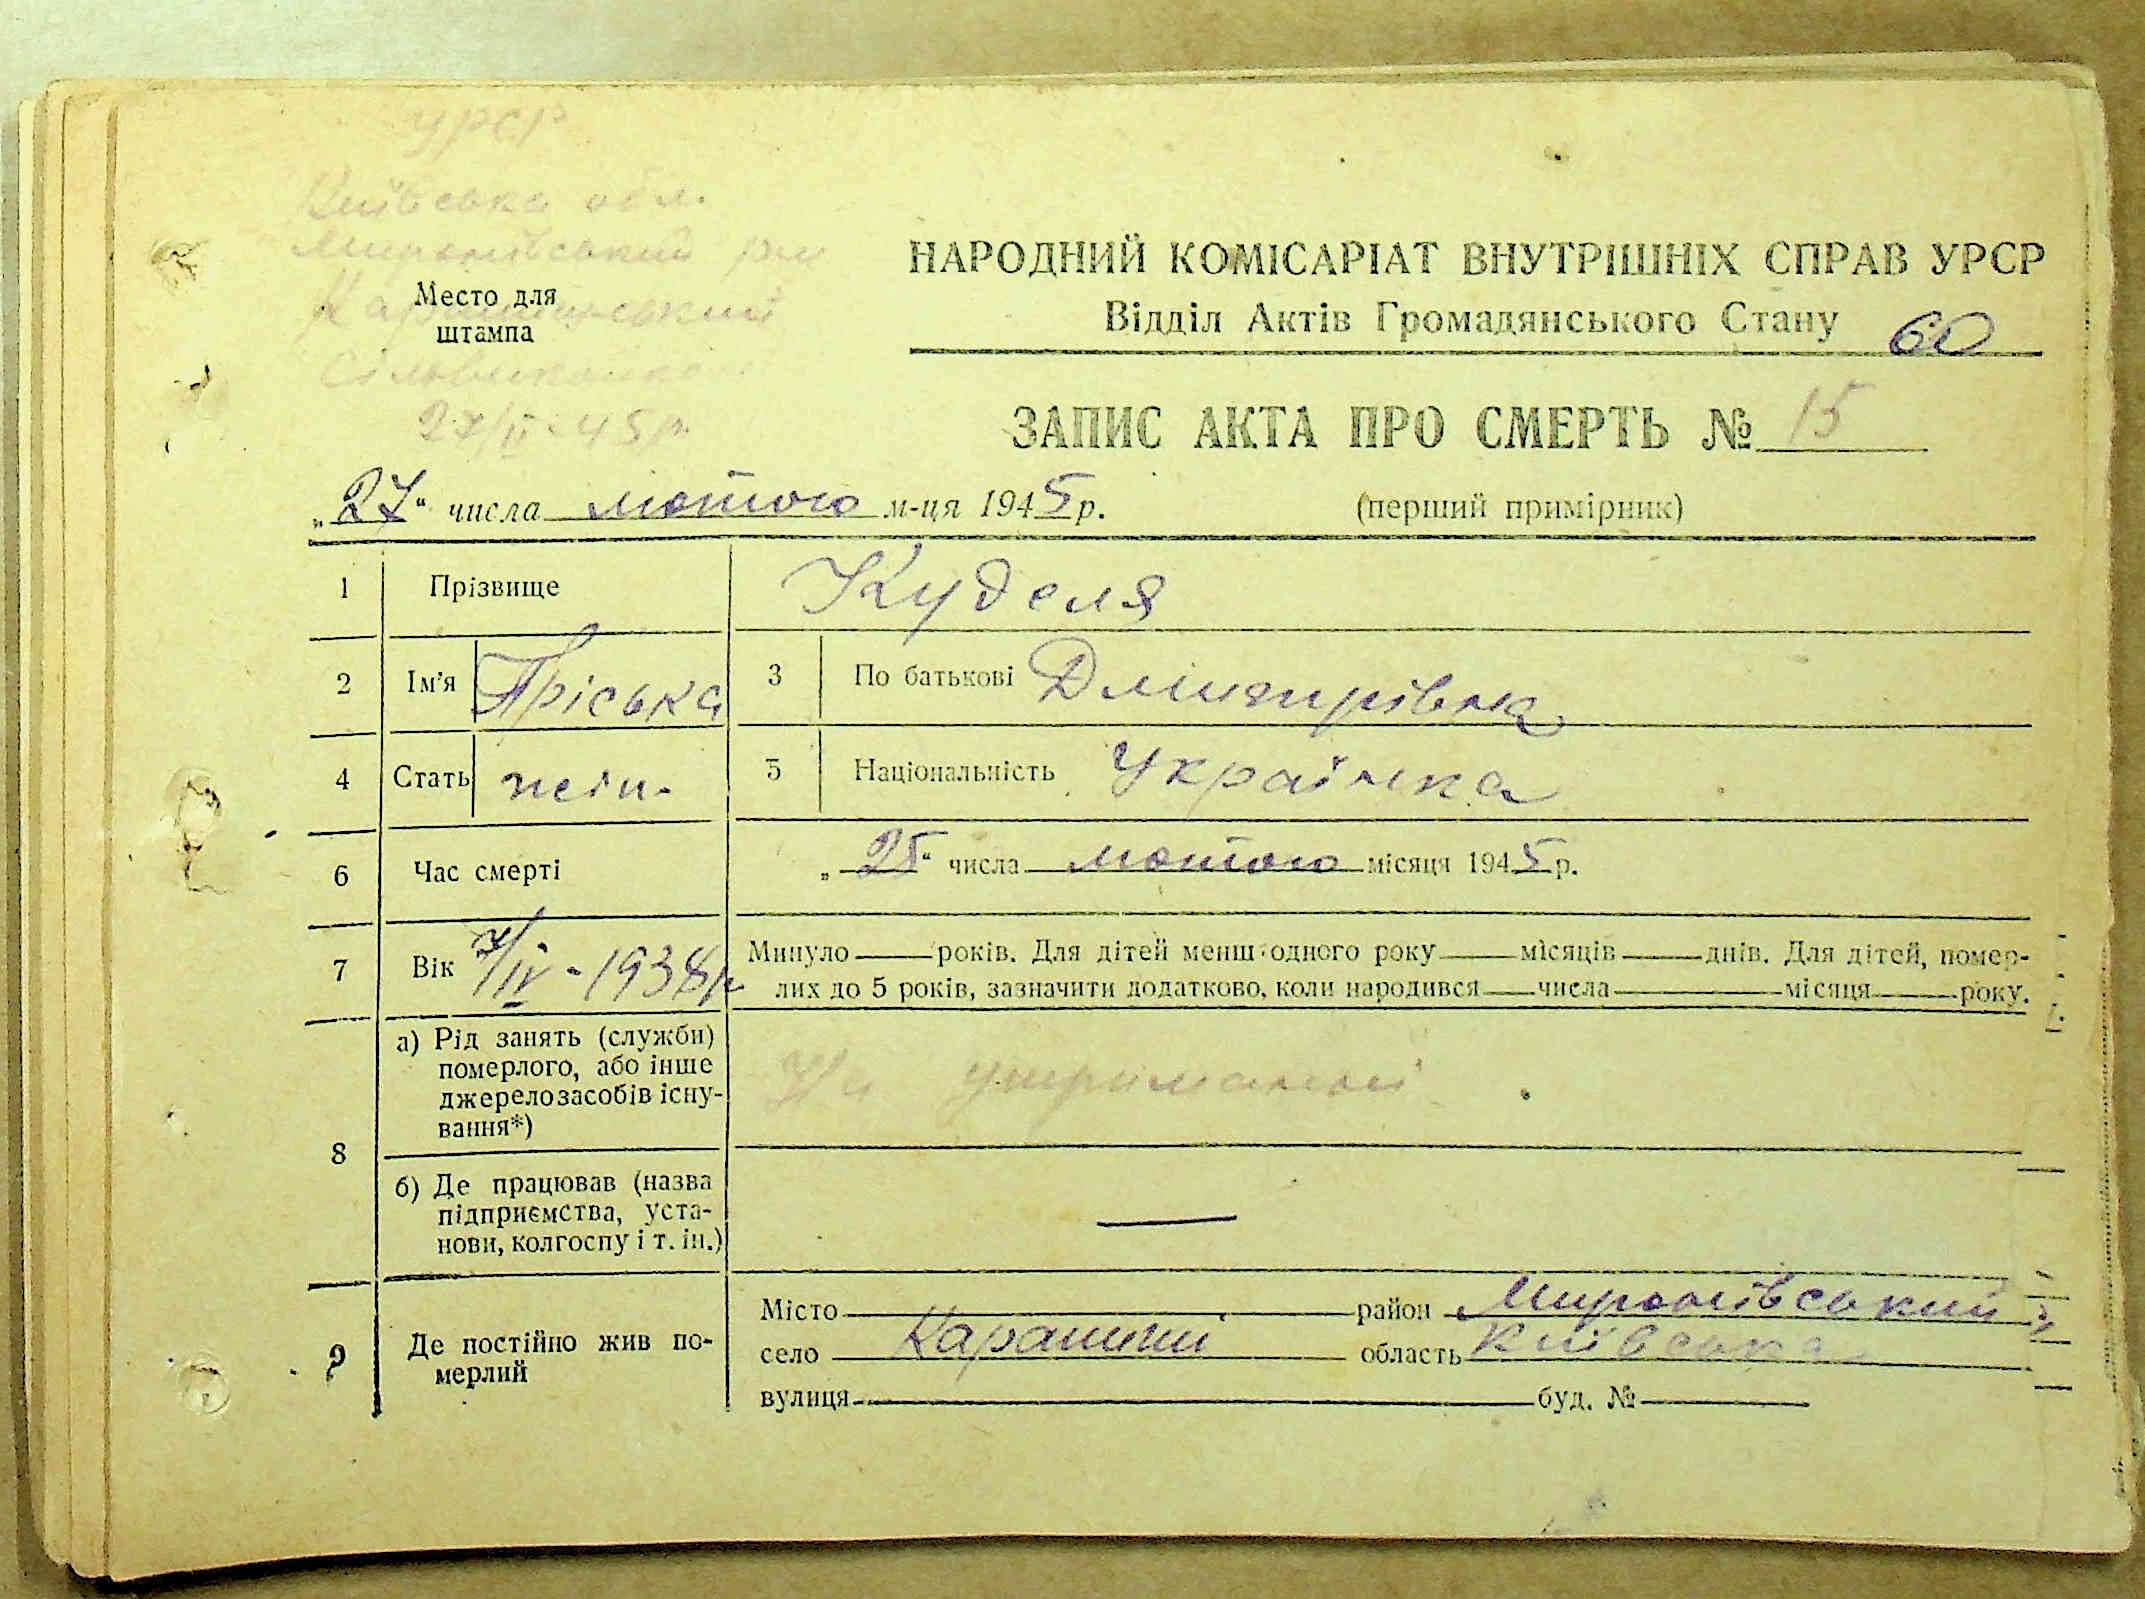 УРСР
Київська обл.
Миронівський р-н
Карапишський
Место для
штампа
27/II-45р.
НАРОДНИЙ КОМІСАРІАТ ВНУТРІШНІХ СПРАВ УРСР
Відділ Актів Громадянського Стану 60
ЗАПИС АКТА ПРО СМЕРТЬ № 15
„27“ числа лютого м-ця 1945р. (перший примірник)
1 Прізвище Куделя
2 Ім'я Пріська 3 По батькові Дмитрівна
4 Стать жін. 5 Національність Українка
6 Час смерті „25“ числа лютого місяця 1945р.
7 Вік 7/IV-1938р Минуло років. Для дітей менш одного року місяців днів. Для дітей, помер-
лих до 5 років, зазначити додатково, коли народився числа місяця року.
8 а) Рід занять (служби)
померлого, або інше
джерело засобів існу-
вання*)
утриманні
б) Де працював (назва
підприємства, уста-
нови, колгоспу і т. ін.) —
9 Де постійно жив по-
мерлий
Місто район Миронівський
село Карапиші область Київська
вулиця буд. №